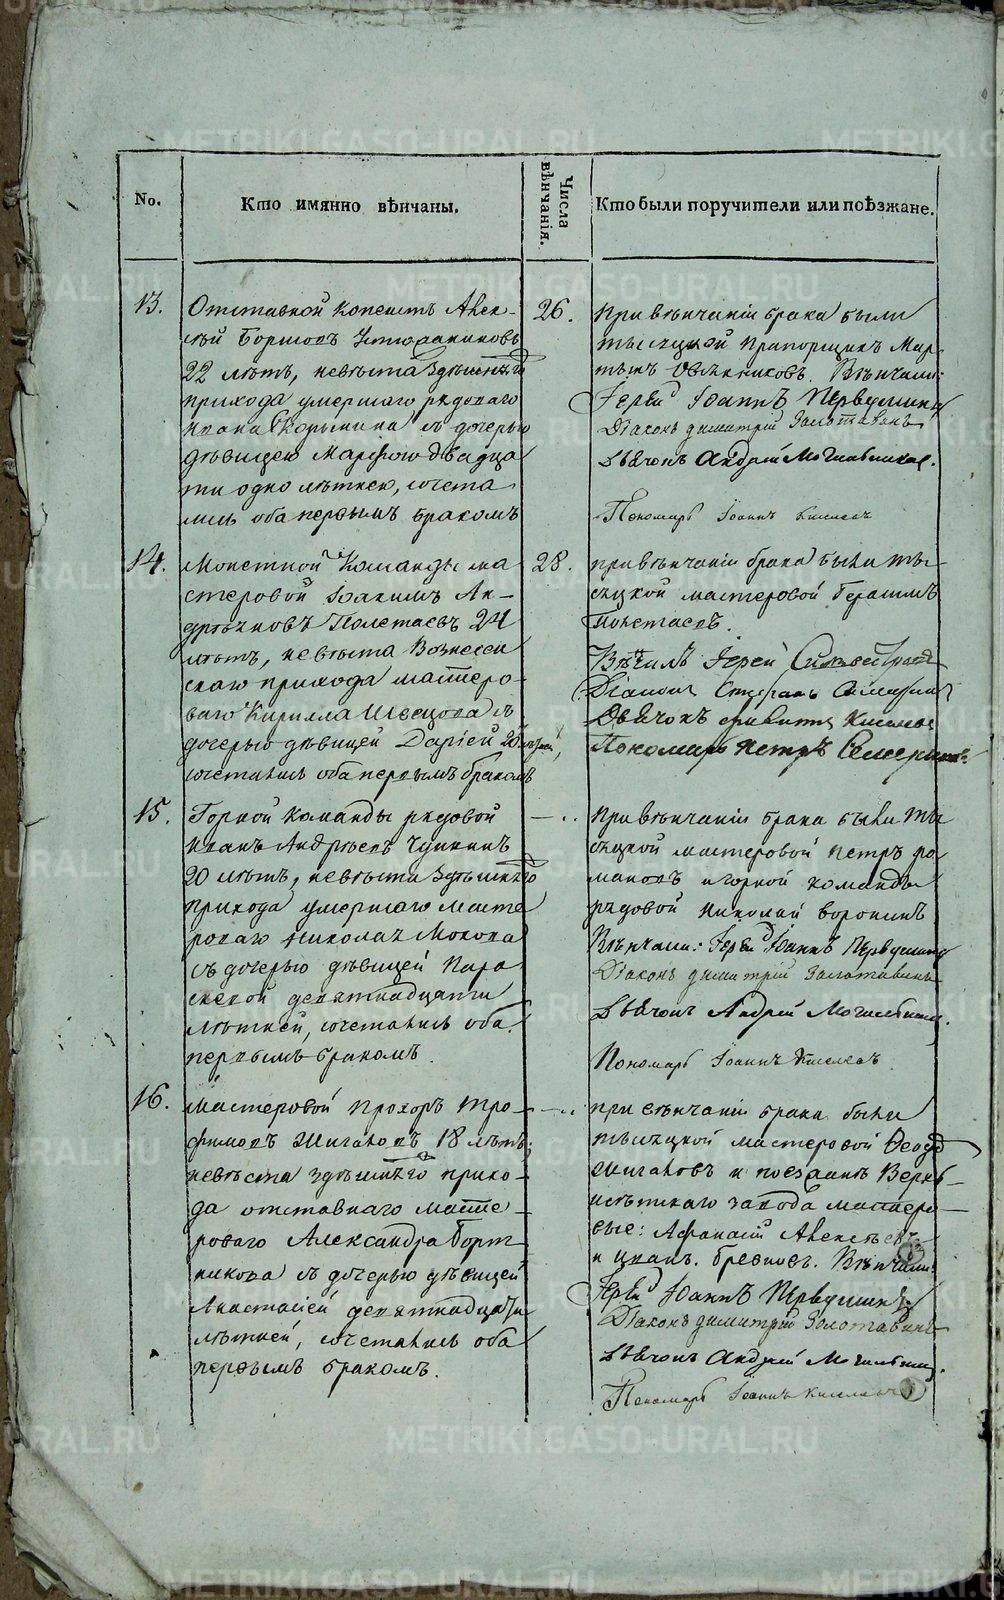 METRIKI.GASO-URAL.RU
No.
Кто имянно вѣнчаны.
Числа вѣнчанія.
Кто были поручители или поѣзжане.
13.
Отставной копеистъ Алек-
сѣй
22 лѣтъ, невѣста здѣшнѣго
прихода умершаго рядоваго
Ивана Корымина съ дочерью
дѣвицею Марфою двадца
ти одно лѣтнею, сочета
лись оба первымъ бракомъ
26.
при вѣнчаніи брака были
тысяцкой Прапорщикъ Мар-
Овчинниковъ. Вѣнчали:
Іерей Іоаннъ Первушинъ
Діаконъ Димитрій Золотавинъ
Дьячокъ Андрей Могильников.
Пономарь Іоаннъ Киселевъ
14.
Монетной Команды ма
стеровой Іоакимъ Ан-
дрѣяновъ Полетаевъ 24
лѣтъ, невѣста Вознесен
скаго прихода мастеро-
ваго Кирилла Швецова съ
дочерью дѣвицей Даріей 20
сочетались оба первымъ бракомъ
28.
при вѣнчаніи брака были ты-
сяцкой мастеровой Герасимъ
Полетаевъ.
Вѣнчалъ Іерей
Діаконъ Стефанъ
Дьячокъ
Пономарь Петръ
15.
Горной команды рядовой
Иванъ Андрѣевъ Чупинъ
20 лѣтъ, невѣста здѣшнѣго
прихода умершаго масте
роваго Николая Мокова
съ дочерью дѣвицей Пара
скевой девятнадцати
лѣтней, сочетались оба
первымъ бракомъ.
— ..
при вѣнчаніи брака были ты
сяцкой мастеровой Петръ Ро
мановъ и горной команды
рядовой Николай Воронинъ
Вѣнчали: Іерей Іоаннъ Первушинъ
Діаконъ Димитрій Золотавинъ
Дьячокъ Андрей Могильников.
Пономарь Іоаннъ Киселевъ
16.
Мастеровой Прохоръ Тро-
фимовъ Жигаловъ 18 лѣтъ,
невѣста здѣшнѣго прихо-
да отставнаго масте-
роваго Александра Борт
никова съ дочерью дѣвицей
Анастасіей девятнадцати
лѣтней, сочетались оба
первымъ бракомъ.
— ..
при вѣнчаніи брака были
тысяцкой мастеровой Ѳеодо
Жигаловъ и поезжане Верхъ-
исѣтскаго завода мастеро-
вые: Афанасій Алексѣевъ
и Иванъ. Вѣнчали:
Іерей Іоаннъ Первушинъ
Діаконъ Димитрій Золотавинъ
Дьячокъ Андрей Могильников.
Пономарь Іоаннъ Киселевъ